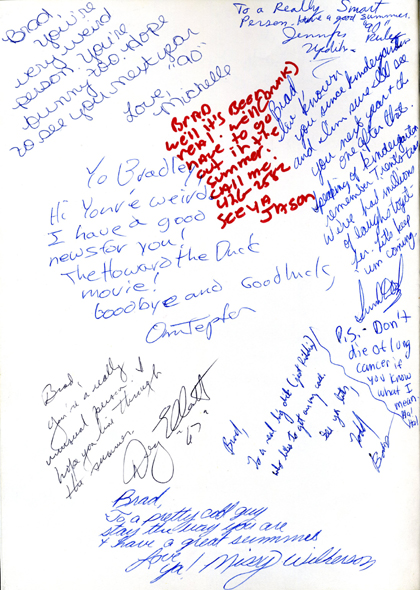 Brad,
you're
very weird
person. You're
bunny too. Hope
to see you next year
"90"
Love,
Michelle
To a Really Smart
Person. Have a good summer.
"90" Rules
Jennifer
BRAD
well it's BEEN
real. well (DRUNK)
HAVE to go
out in the
summer!
CAll me.
426-2582
SEE YA
JASON
Brad,
I've known
you since kindergarden
and I'm sure I'll see
you next year & the
one after that.
Speaking of kindergarden
remember
We've had millions
of laughs toget-
her. Lets keep
um coming.
P.S.- Don't
die of lung
cancer if
you know
what I
mean.
Ha!
Ha!
Yo Bradley,
Hi You're weird.
I have a good
news for you!
The Howard the Duck
movie!
Goodbye and Good luck,
Brad,
you're a really
unusual person &
hope you live through
the summer.
Doug Elliott
Brad,
To a real big
who likes to get on my
See ya later,
Todd
Brad,
To a pretty cool guy
stay the way you are
& have a great summer
Love
ya! Missy Wilkerson